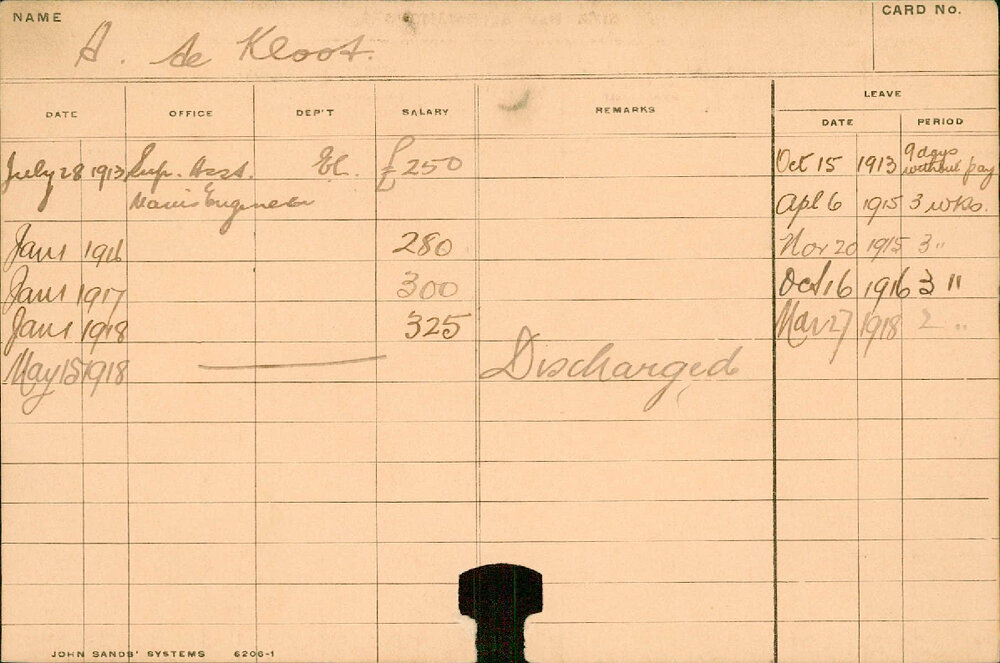 NAME
CARD No.
A. de Kloot.
LEAVE
DATE OFFICE DEP'T SALARY REMARKS DATE PERIOD
July 28 1913 Sup. Asst. El. £250 Oct 15 1913 9 days without pay
Mains Engineer Apl 6 1915 3 wks.
Jan 1 1916 280 Nov 20 1915 3 "
Jan 1 1917 300 Oct 16 1916 3 "
Jan 1 1918 325 Mar 27 1918 2 "
May 15 1918 Discharged
JOHN SANDS' SYSTEMS 6206-1